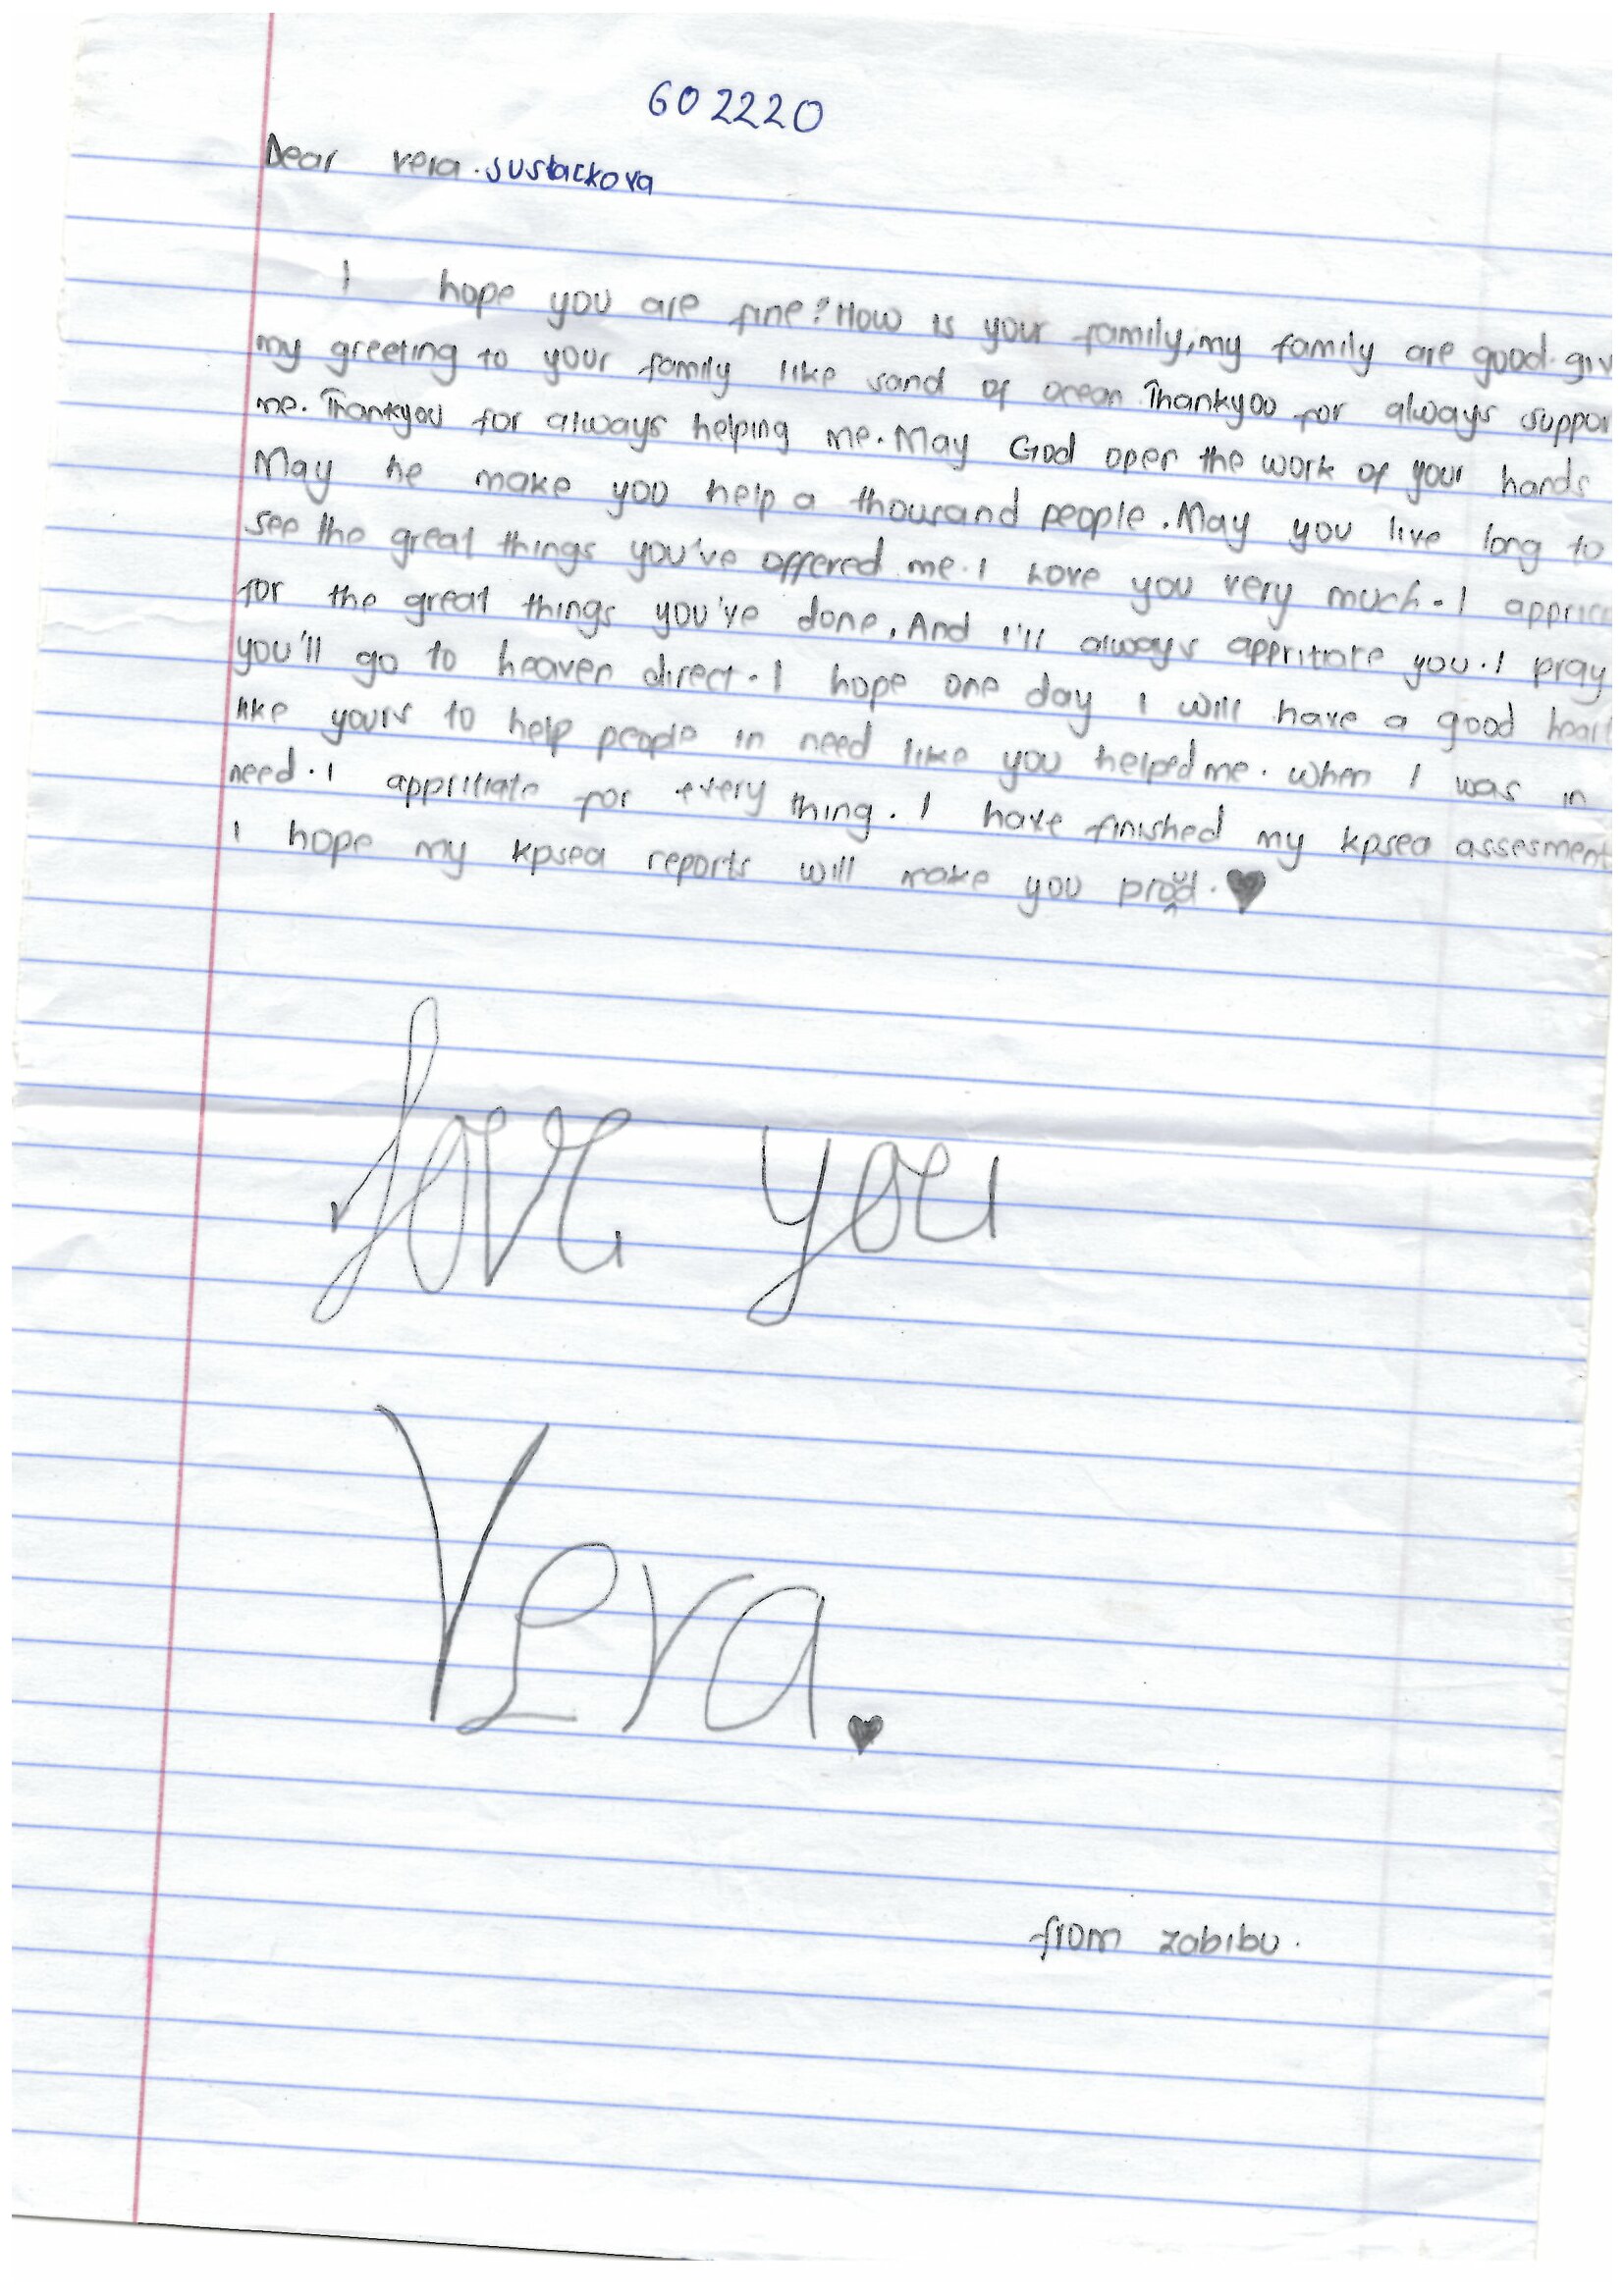 602220
Dear vera. sustackova
I hope you are fine? How is your family, my family are good. giv
my greeting to your family like sand of ocean Thankyou for always suppor
me. Thankyou for always helping me. May God open the work of your hands
May he make you help a thousand people. May you live long to
see the great things you've offered me. I Love you very much. I appric
for the great things you've done. And I'll always appritiate you. I pray
you'll go to heaven direct. I hope one day I will have a good heart
like yours to help people in need like you helped me. when I was in
need. I appritiate for every thing. I have finished my kpsea assesment
I hope my kpsea reports will make you proud. ♥
love you
Vera. ♥
from zabibu.